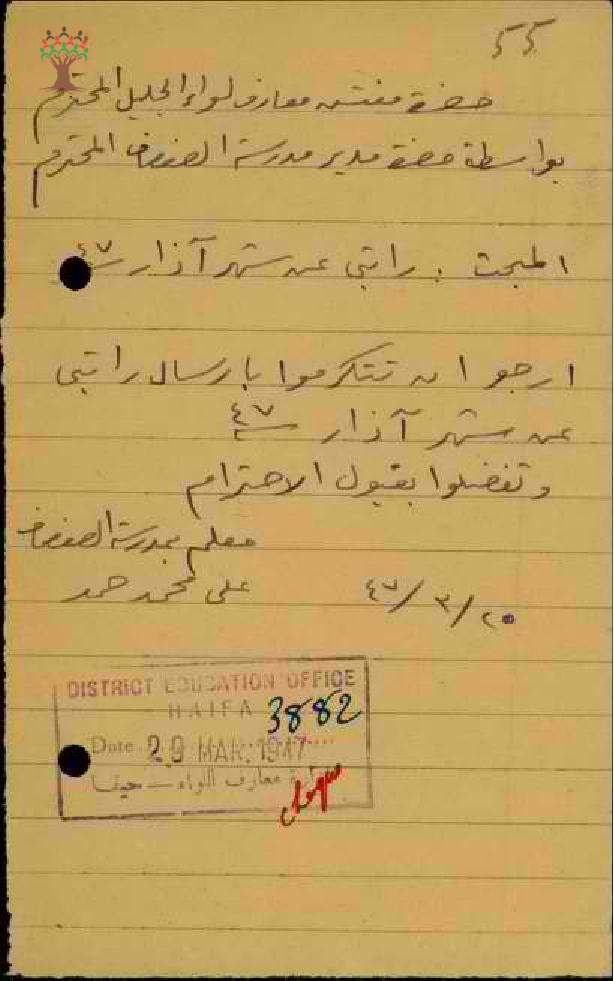 55
حضرة مفتش معارف لواء الجليل المحترم
بواسطة حضرة مدير مدرسة الصفصاف المحترم
المبحث : راتبي عن شهر آذار ٤٧
ارجو ان تتكرموا بارسال راتبي
عن شهر آذار سنة ٤٧
وتفضلوا بقبول الاحترام
معلم بمدرسة الصفصاف
علي محمد حمد
٢٥/٣/٤٧
DISTRICT EDUCATION OFFICE
HAIFA 3882
Date 29 MAR. 1947
معارف اللواء — حيفا